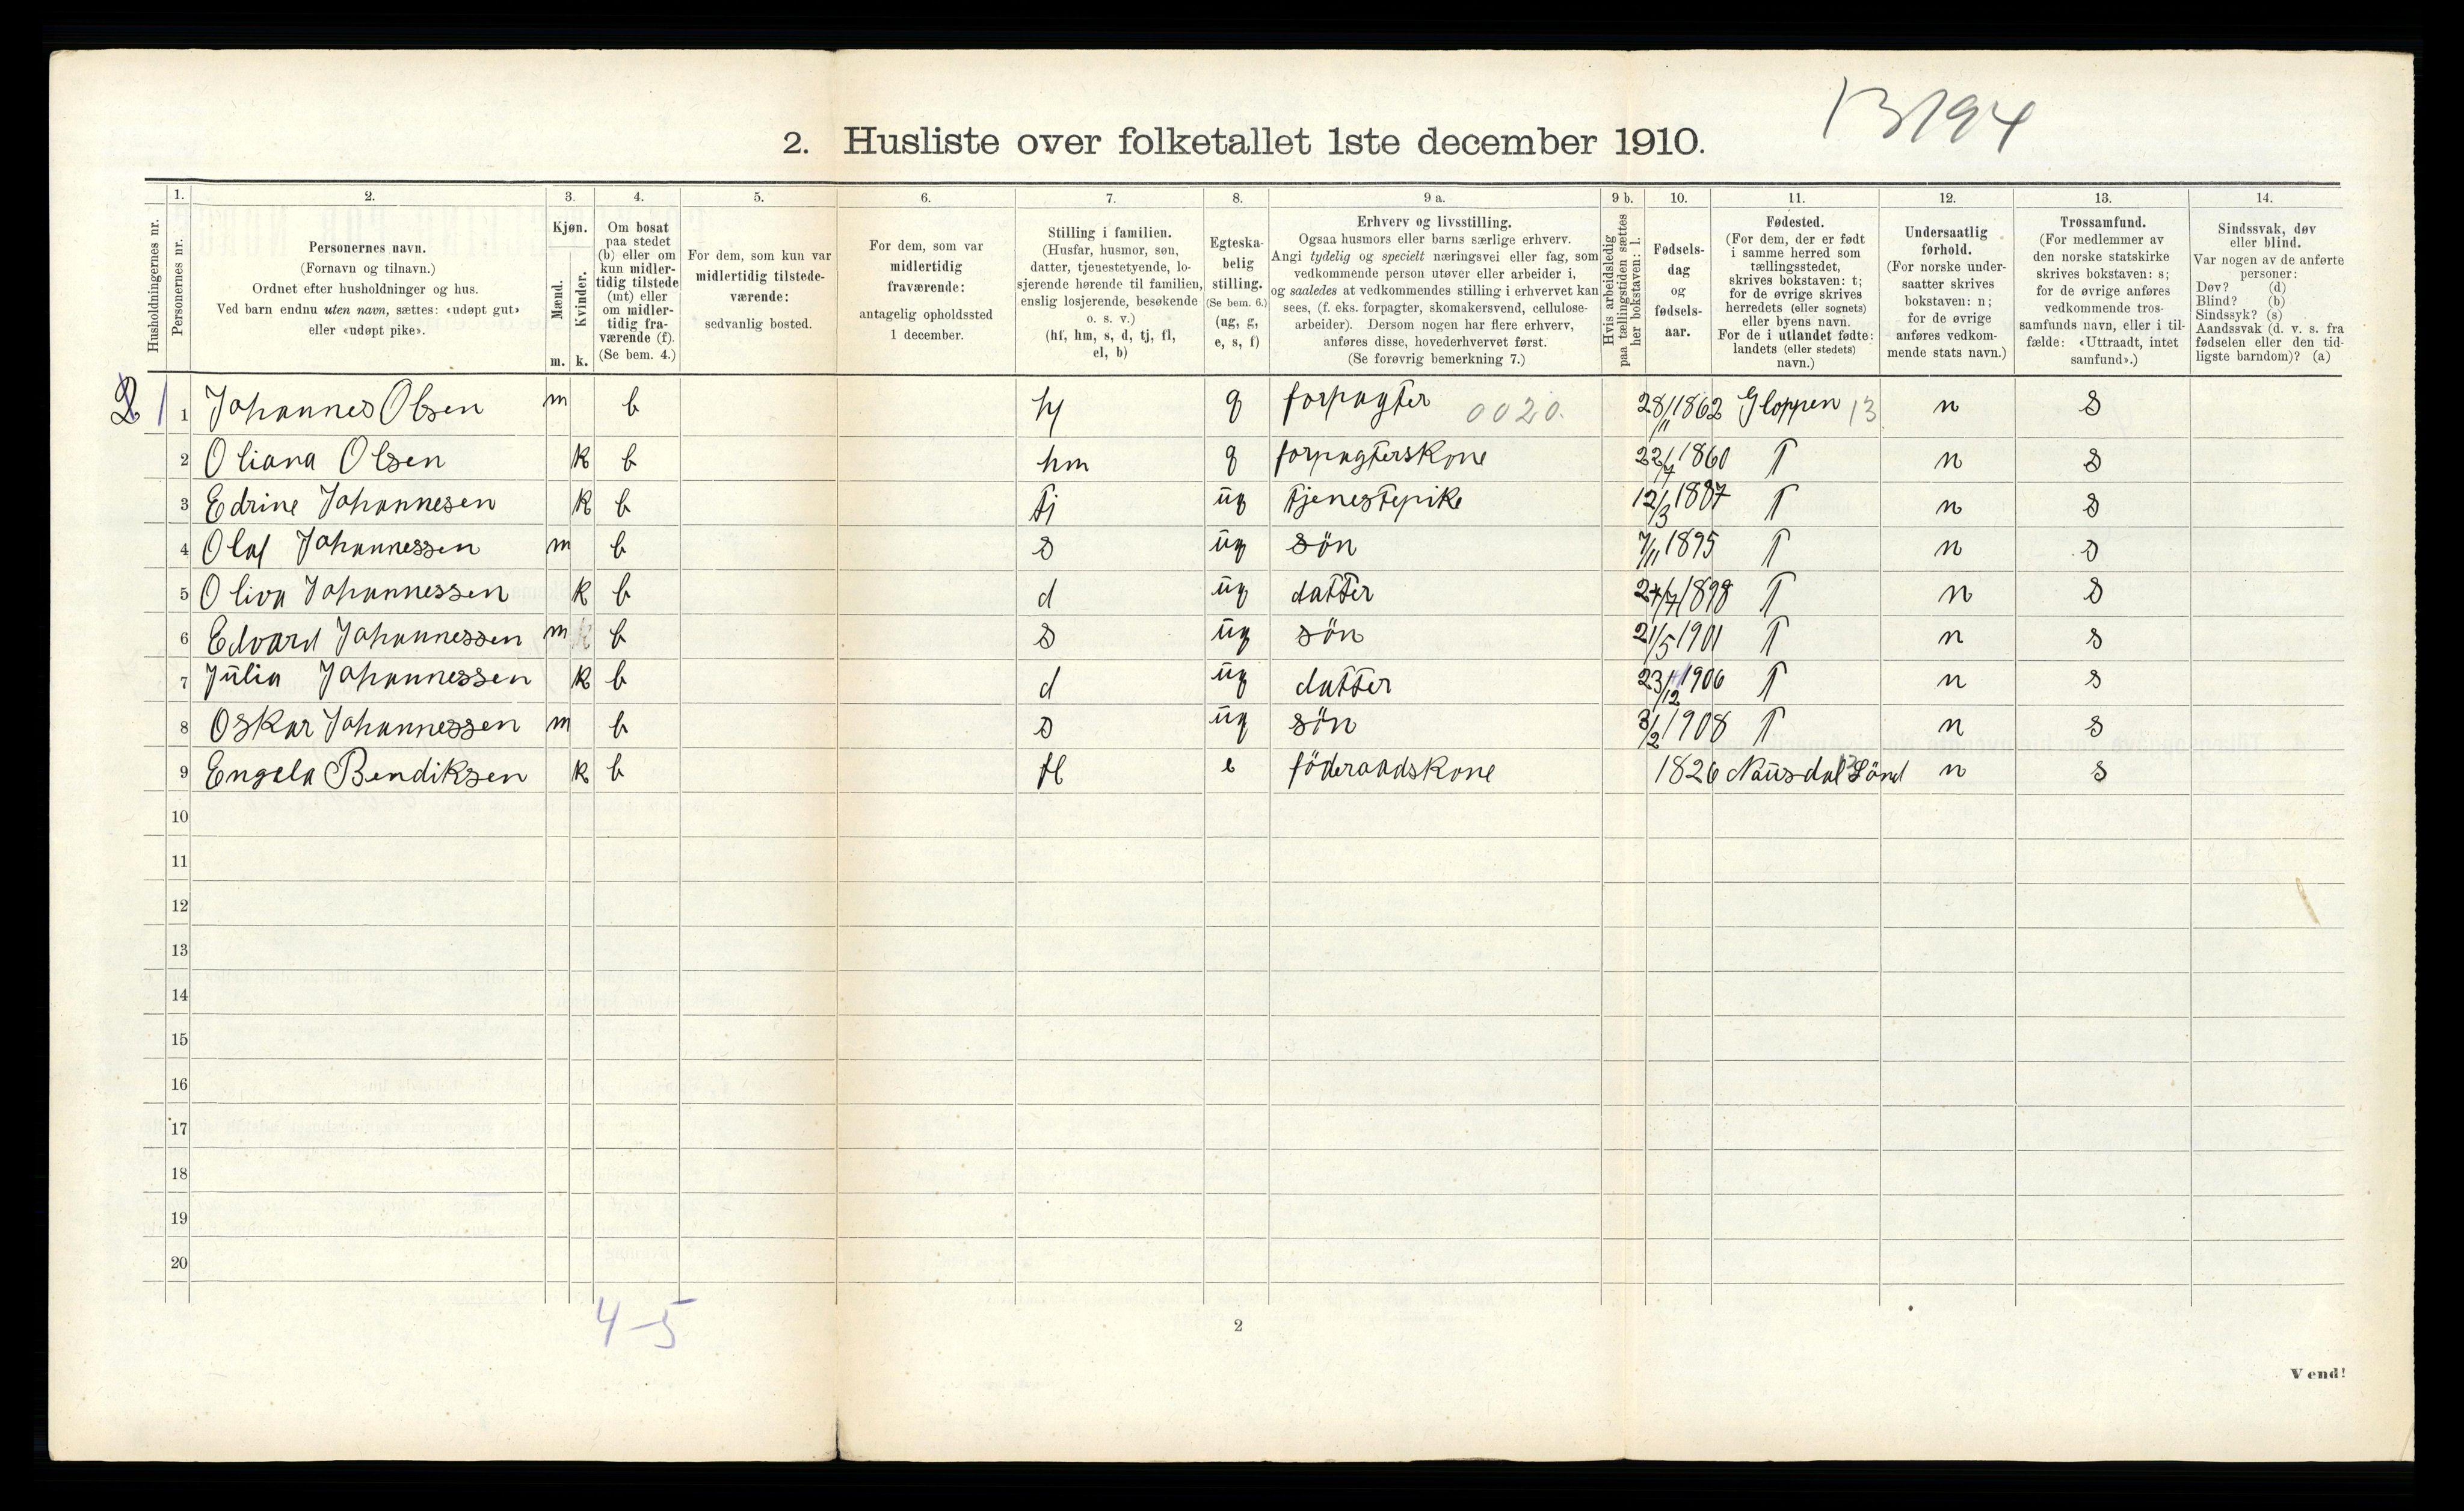 13194
2. Husliste over folketallet 1ste december 1910.
Husholdningernes nr.
1. Personernes nr.
2. Personernes navn.
(Fornavn og tilnavn.)
Ordnet efter husholdninger og hus.
Ved barn endnu uten navn, sættes: «udøpt gut»
eller «udøpt pike».
3. Kjøn.
Mænd. m.
Kvinder. k.
4. Om bosat
paa stedet
(b) eller om
kun midler-
tidig tilstede
(mt) eller
om midler-
tidig fra-
værende (f).
(Se bem. 4.)
5. For dem, som kun var
midlertidig tilstede-
værende:
sedvanlig bosted.
6. For dem, som var
midlertidig
fraværende:
antagelig opholdssted
1 december.
7. Stilling i familien.
(Husfar, husmor, søn,
datter, tjenestetyende, lo-
sjerende hørende til familien,
enslig losjerende, besøkende
o. s. v.)
(hf, hm, s, d, tj, fl,
el, b)
8. Egteska-
belig
stilling.
(Se bem. 6.)
(ug, g,
e, s, f)
9 a. Erhverv og livsstilling.
Ogsaa husmors eller barns særlige erhverv.
Angi tydelig og specielt næringsvei eller fag, som
vedkommende person utøver eller arbeider i,
og saaledes at vedkommendes stilling i erhvervet kan
sees, (f. eks. forpagter, skomakersvend, cellulose-
arbeider). Dersom nogen har flere erhverv,
anføres disse, hovederhvervet først.
(Se forøvrig bemerkning 7.)
9 b. Hvis arbeidsledig
paa tællingstiden sættes
her bokstaven: l.
10. Fødsels-
dag
og
fødsels-
aar.
11. Fødested.
(For dem, der er født
i samme herred som
tællingsstedet,
skrives bokstaven: t;
for de øvrige skrives
herredets (eller sognets)
eller byens navn.
For de i utlandet fødte:
landets (eller stedets)
navn.)
12. Undersaatlig
forhold.
(For norske under-
saatter skrives
bokstaven: n;
for de øvrige
anføres vedkom-
mende stats navn.)
13. Trossamfund.
(For medlemmer av
den norske statskirke
skrives bokstaven: s;
for de øvrige anføres
vedkommende tros-
samfunds navn, eller i til-
fælde: «Uttraadt, intet
samfund».)
14. Sindssvak, døv
eller blind.
Var nogen av de anførte
personer:
Døv? (d)
Blind? (b)
Sindssyk? (s)
Aandssvak (d. v. s. fra
fødselen eller den tid-
ligste barndom)? (a)
1 1 Johannes Olsen m b hf g forpagter 0020. 28/11 1862 Gloppen 13 n s
2 Oliana Olsen k b hm g forpagterskone 22/7 1860 T n s
3 Edrine Johannesen k b tj ug tjenestepike 12/3 1887 T n s
4 Olaf Johannessen m b s ug søn 7/11 1895 T n s
5 Oliva Johannessen k b d ug datter 24/7 1898 T n s
6 Edvard Johannessen m b s ug søn 21/5 1901 T n s
7 Julia Johannessen k b d ug datter 23/12 1906 T n s
8 Oskar Johannessen m b s ug søn 3/2 1908 T n s
9 Engela Bendiksen k b fl e föderaadskone 1826 Naüsdal Sönd n s
10
11
12
13
14
15
16
17
18
19
20
4-5
2
Vend!